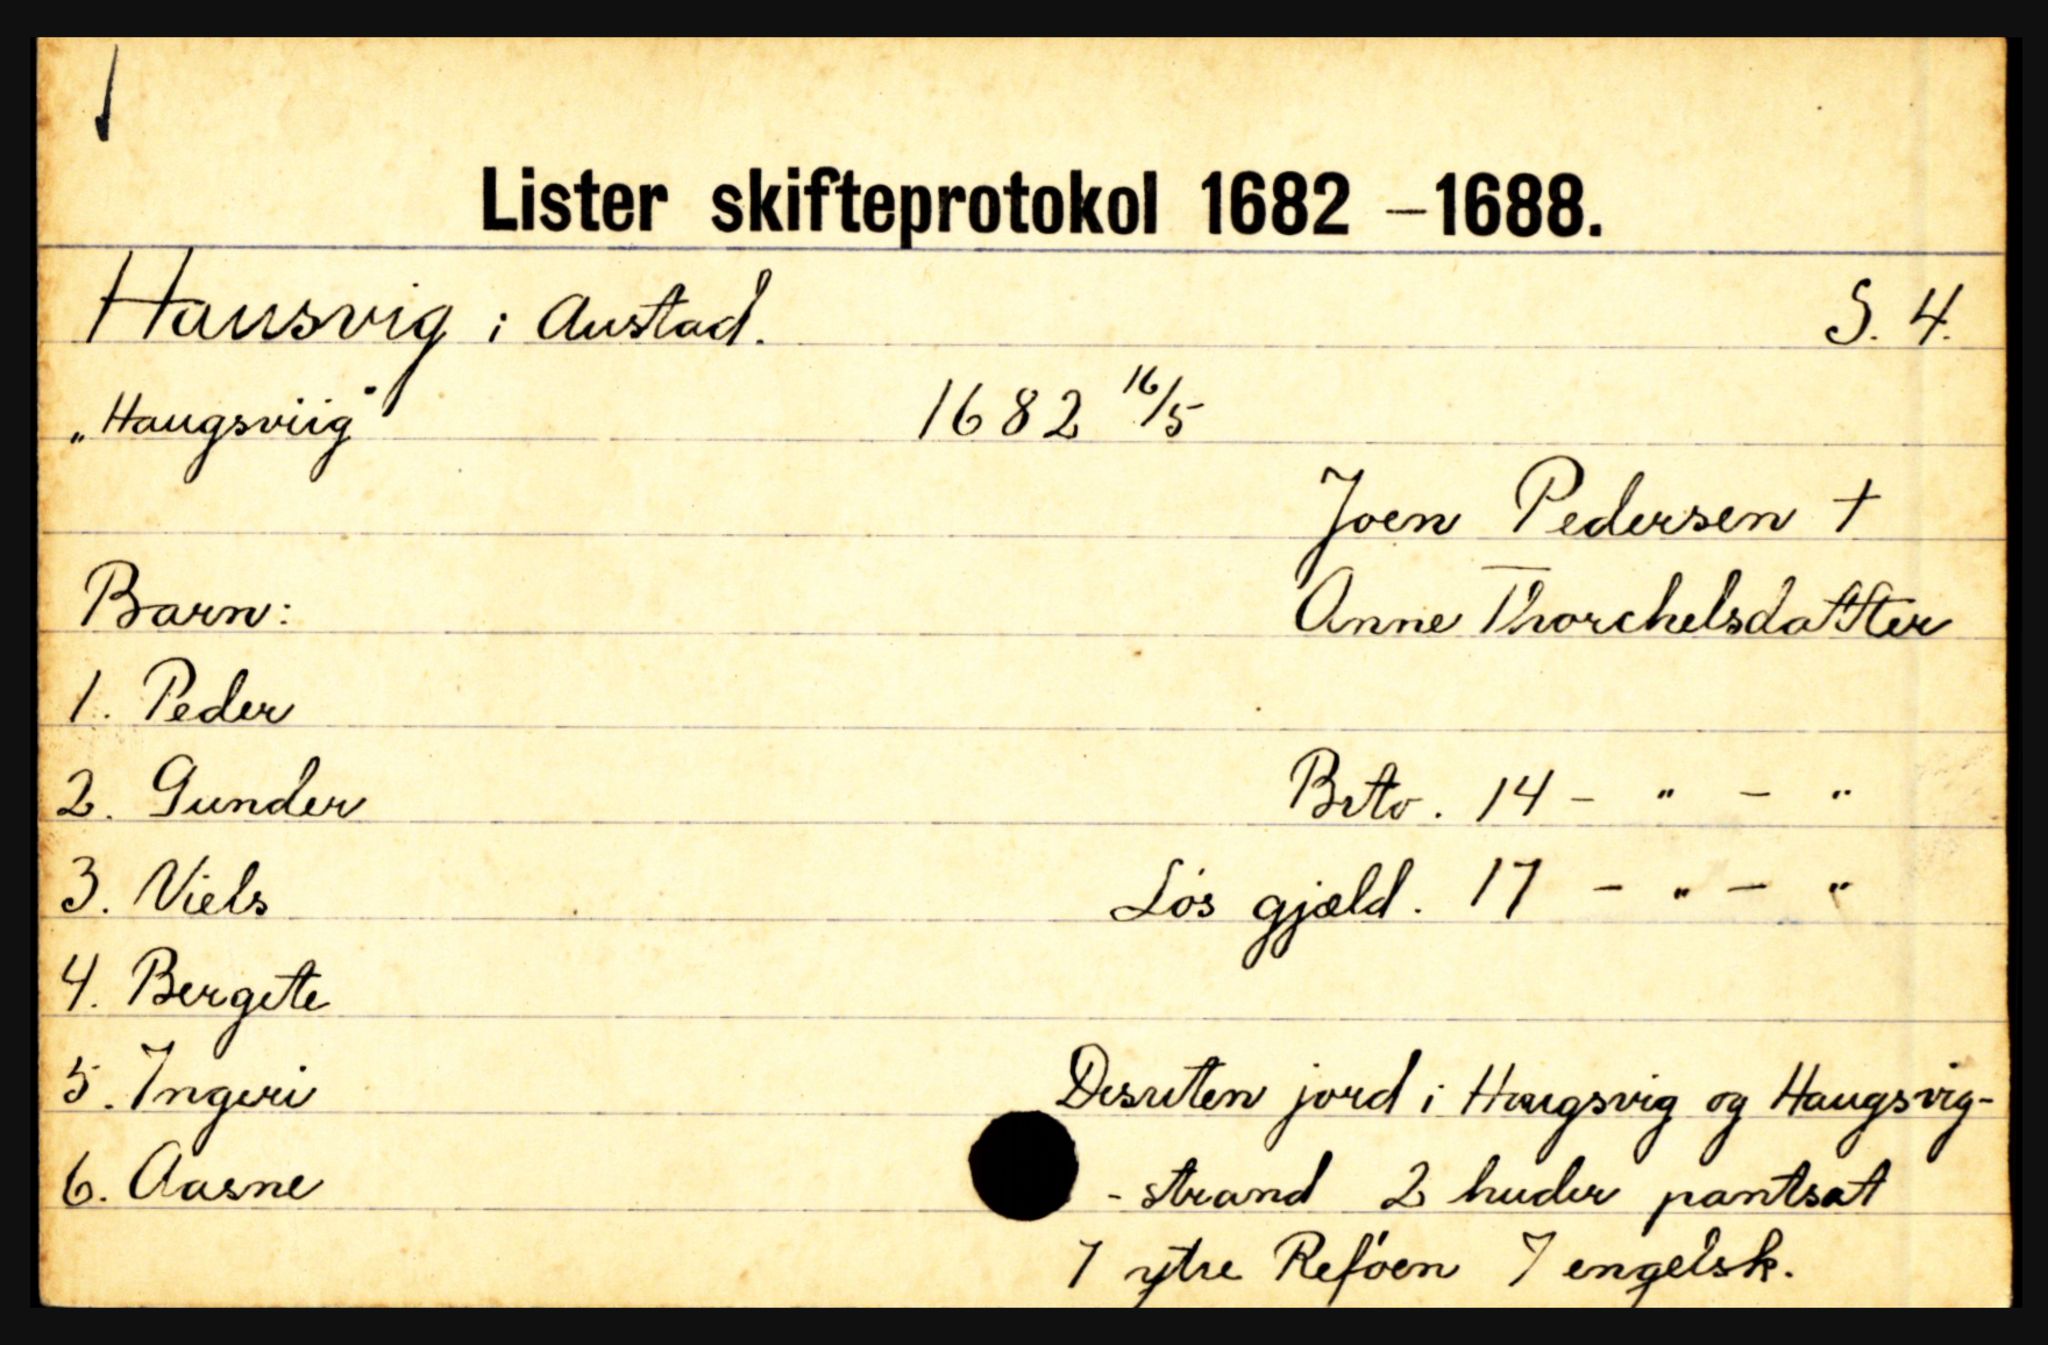 Lister skifteprotokol 1682 – 1688.
Hausvig i Austad. S. 4.
„Haugsviig" 1682 16/5
Joen Pedersen †
Barn: Anne Thorchelsdatter
1. Peder
2. Gunder Brto. 14 - " - "
3. Niels Løs gjæld. 17 - " - "
4. Bergete
5. Ingeri Desuten jord i Haugsvig og Haugsvig-
6. Aasne - strand 2 huder pantsat
I ytre Reføen 7 engelsk.